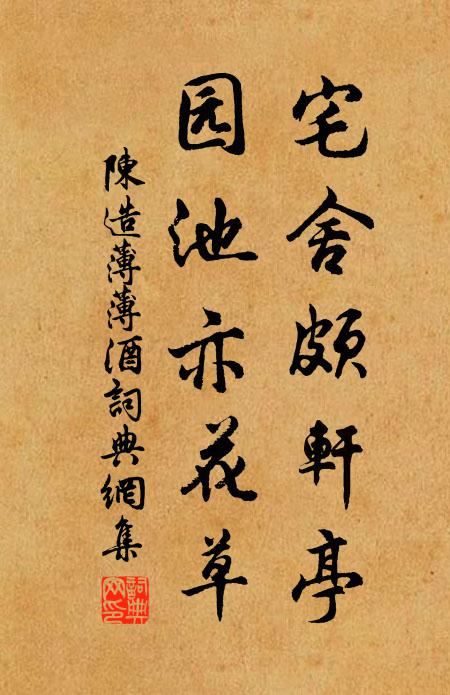 宅舍頗軒亭
园池亦花草
陳造薄薄酒詞典網集
詞典网印